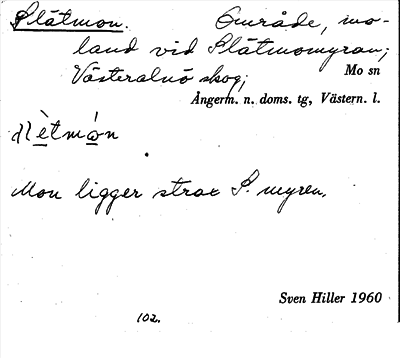 Slåtmon. Område, mo-
land vid Slåtmomyran;
Västeralnö skog;
Mo sn
Ångerm. n. doms. tg, Västern. l.
Mon ligger strax S. myren.
Sven Hiller 1960
102.